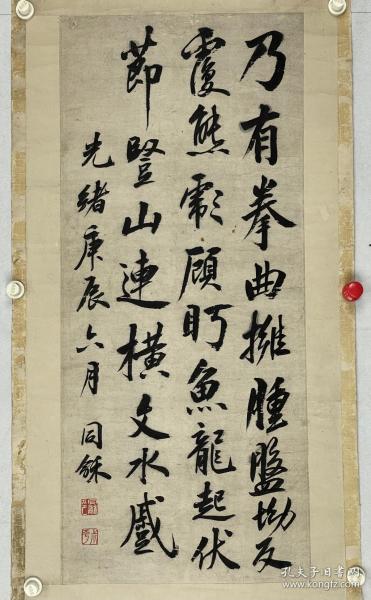 乃有拳曲擁腫盤坳反
覆熊彪顧眄魚龍起伏
莭豎山連橫文水蹙
光緒庚辰六月 同龢
孔夫子旧书网
www.kongfz.com